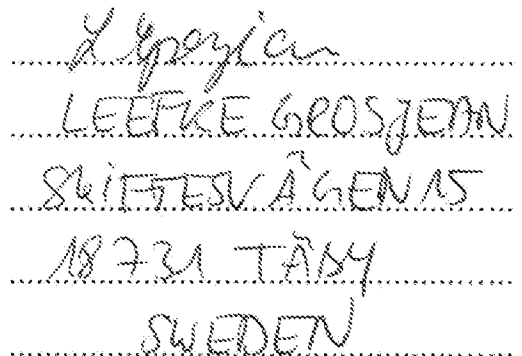 LEEFKE GROSJEAN
SKIFTESVÄGEN 15
18731 TÄBY
SWEDEN